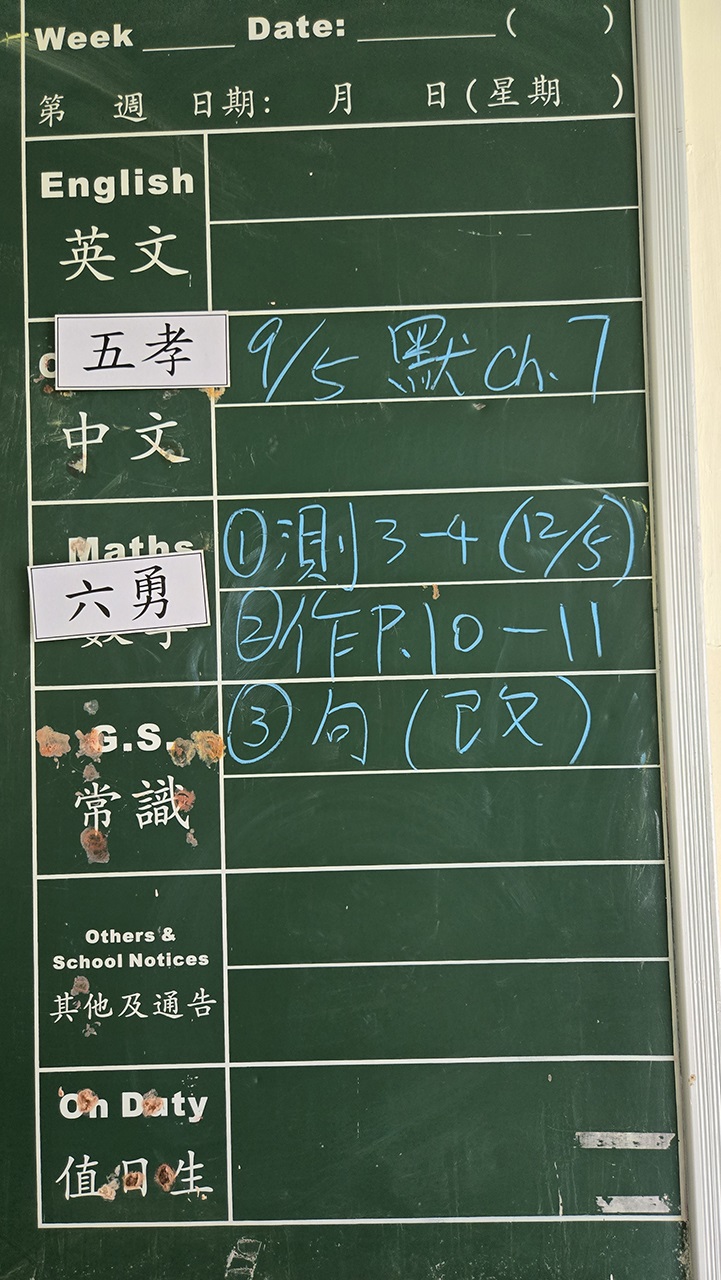 Week ____ Date: ______ ( )
第 週 日期: 月 日(星期 )
English
英文
五孝
9/5 默 Ch. 7
中文
Maths
① 測 3-4 (12/5)
六勇
② 作 P. 10-11
G.S.
③ 句 (改)
常識
Others &
School Notices
其他及通告
On Duty
值日生